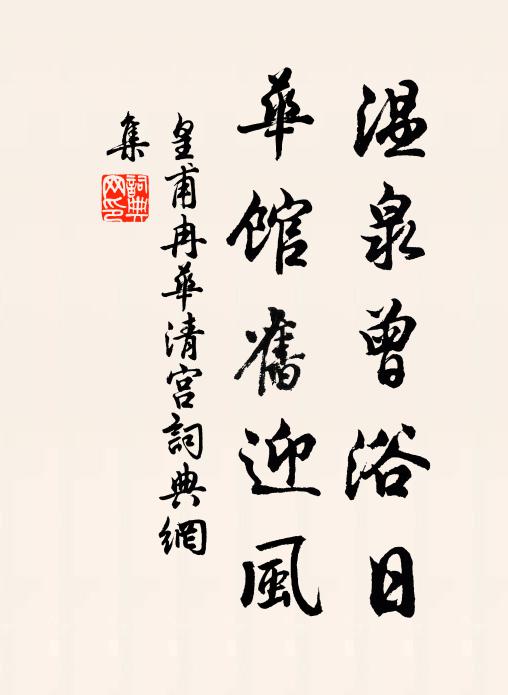 温泉曾浴日
華館舊迎風
皇甫冉華清宮詞典網
集
詞典
网印